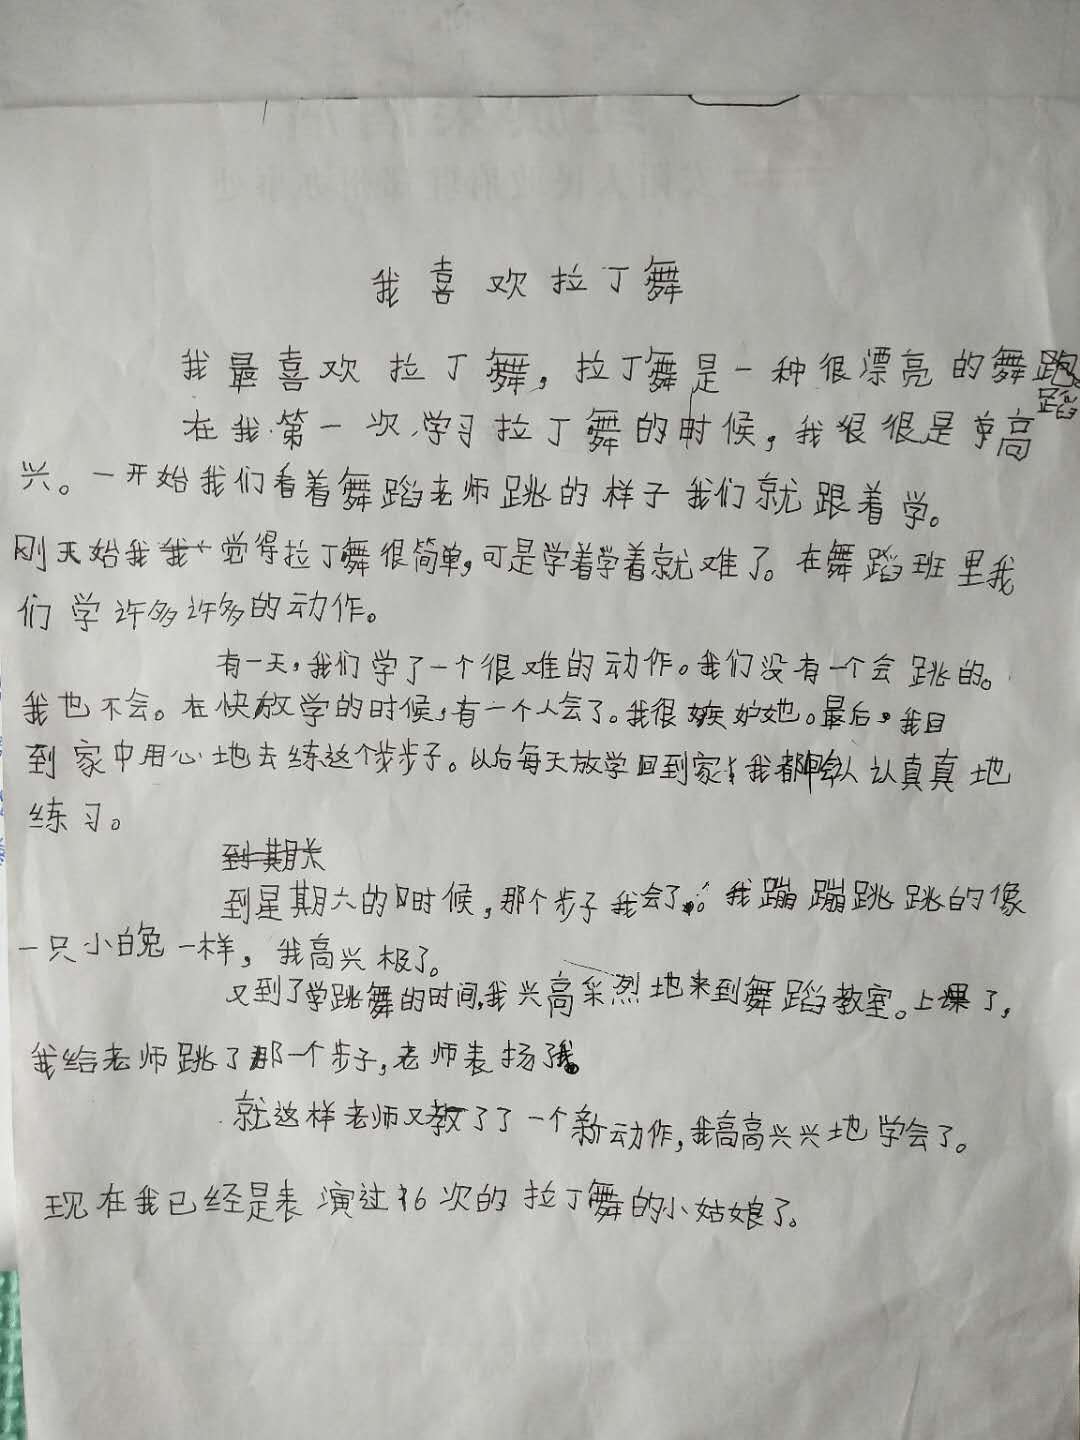 我喜欢拉丁舞
我最喜欢拉丁舞，拉丁舞是一种很漂亮的舞
蹈。
在我第一次学习拉丁舞的时候，我很很是高
兴。一开始我们看着舞蹈老师跳的样子我们就跟着学。
刚天始我觉得拉丁舞很简单，可是学着学着就难了。在舞蹈班里我
们学许多许多的动作。
有一天，我们学了一个很难的动作。我们没有一个会跳的。
我也不会。在快放学的时候，有一个人会了。我很嫉妒她。最后，我回
到家中用心地去练这个步子。以后每天放学回到家我都会认认真真地
练习。
到星期六的时候，那个步子我会了。我蹦蹦跳跳的像
一只小白兔一样，我高兴极了。
又到了学跳舞的时间，我兴高采烈地来到舞蹈教室。上课了，
我给老师跳了那一个步子，老师表扬了我。
就这样老师又教了了一个新动作，我高高兴兴地学会了。
现在我已经是表演过36次的拉丁舞的小姑娘了。